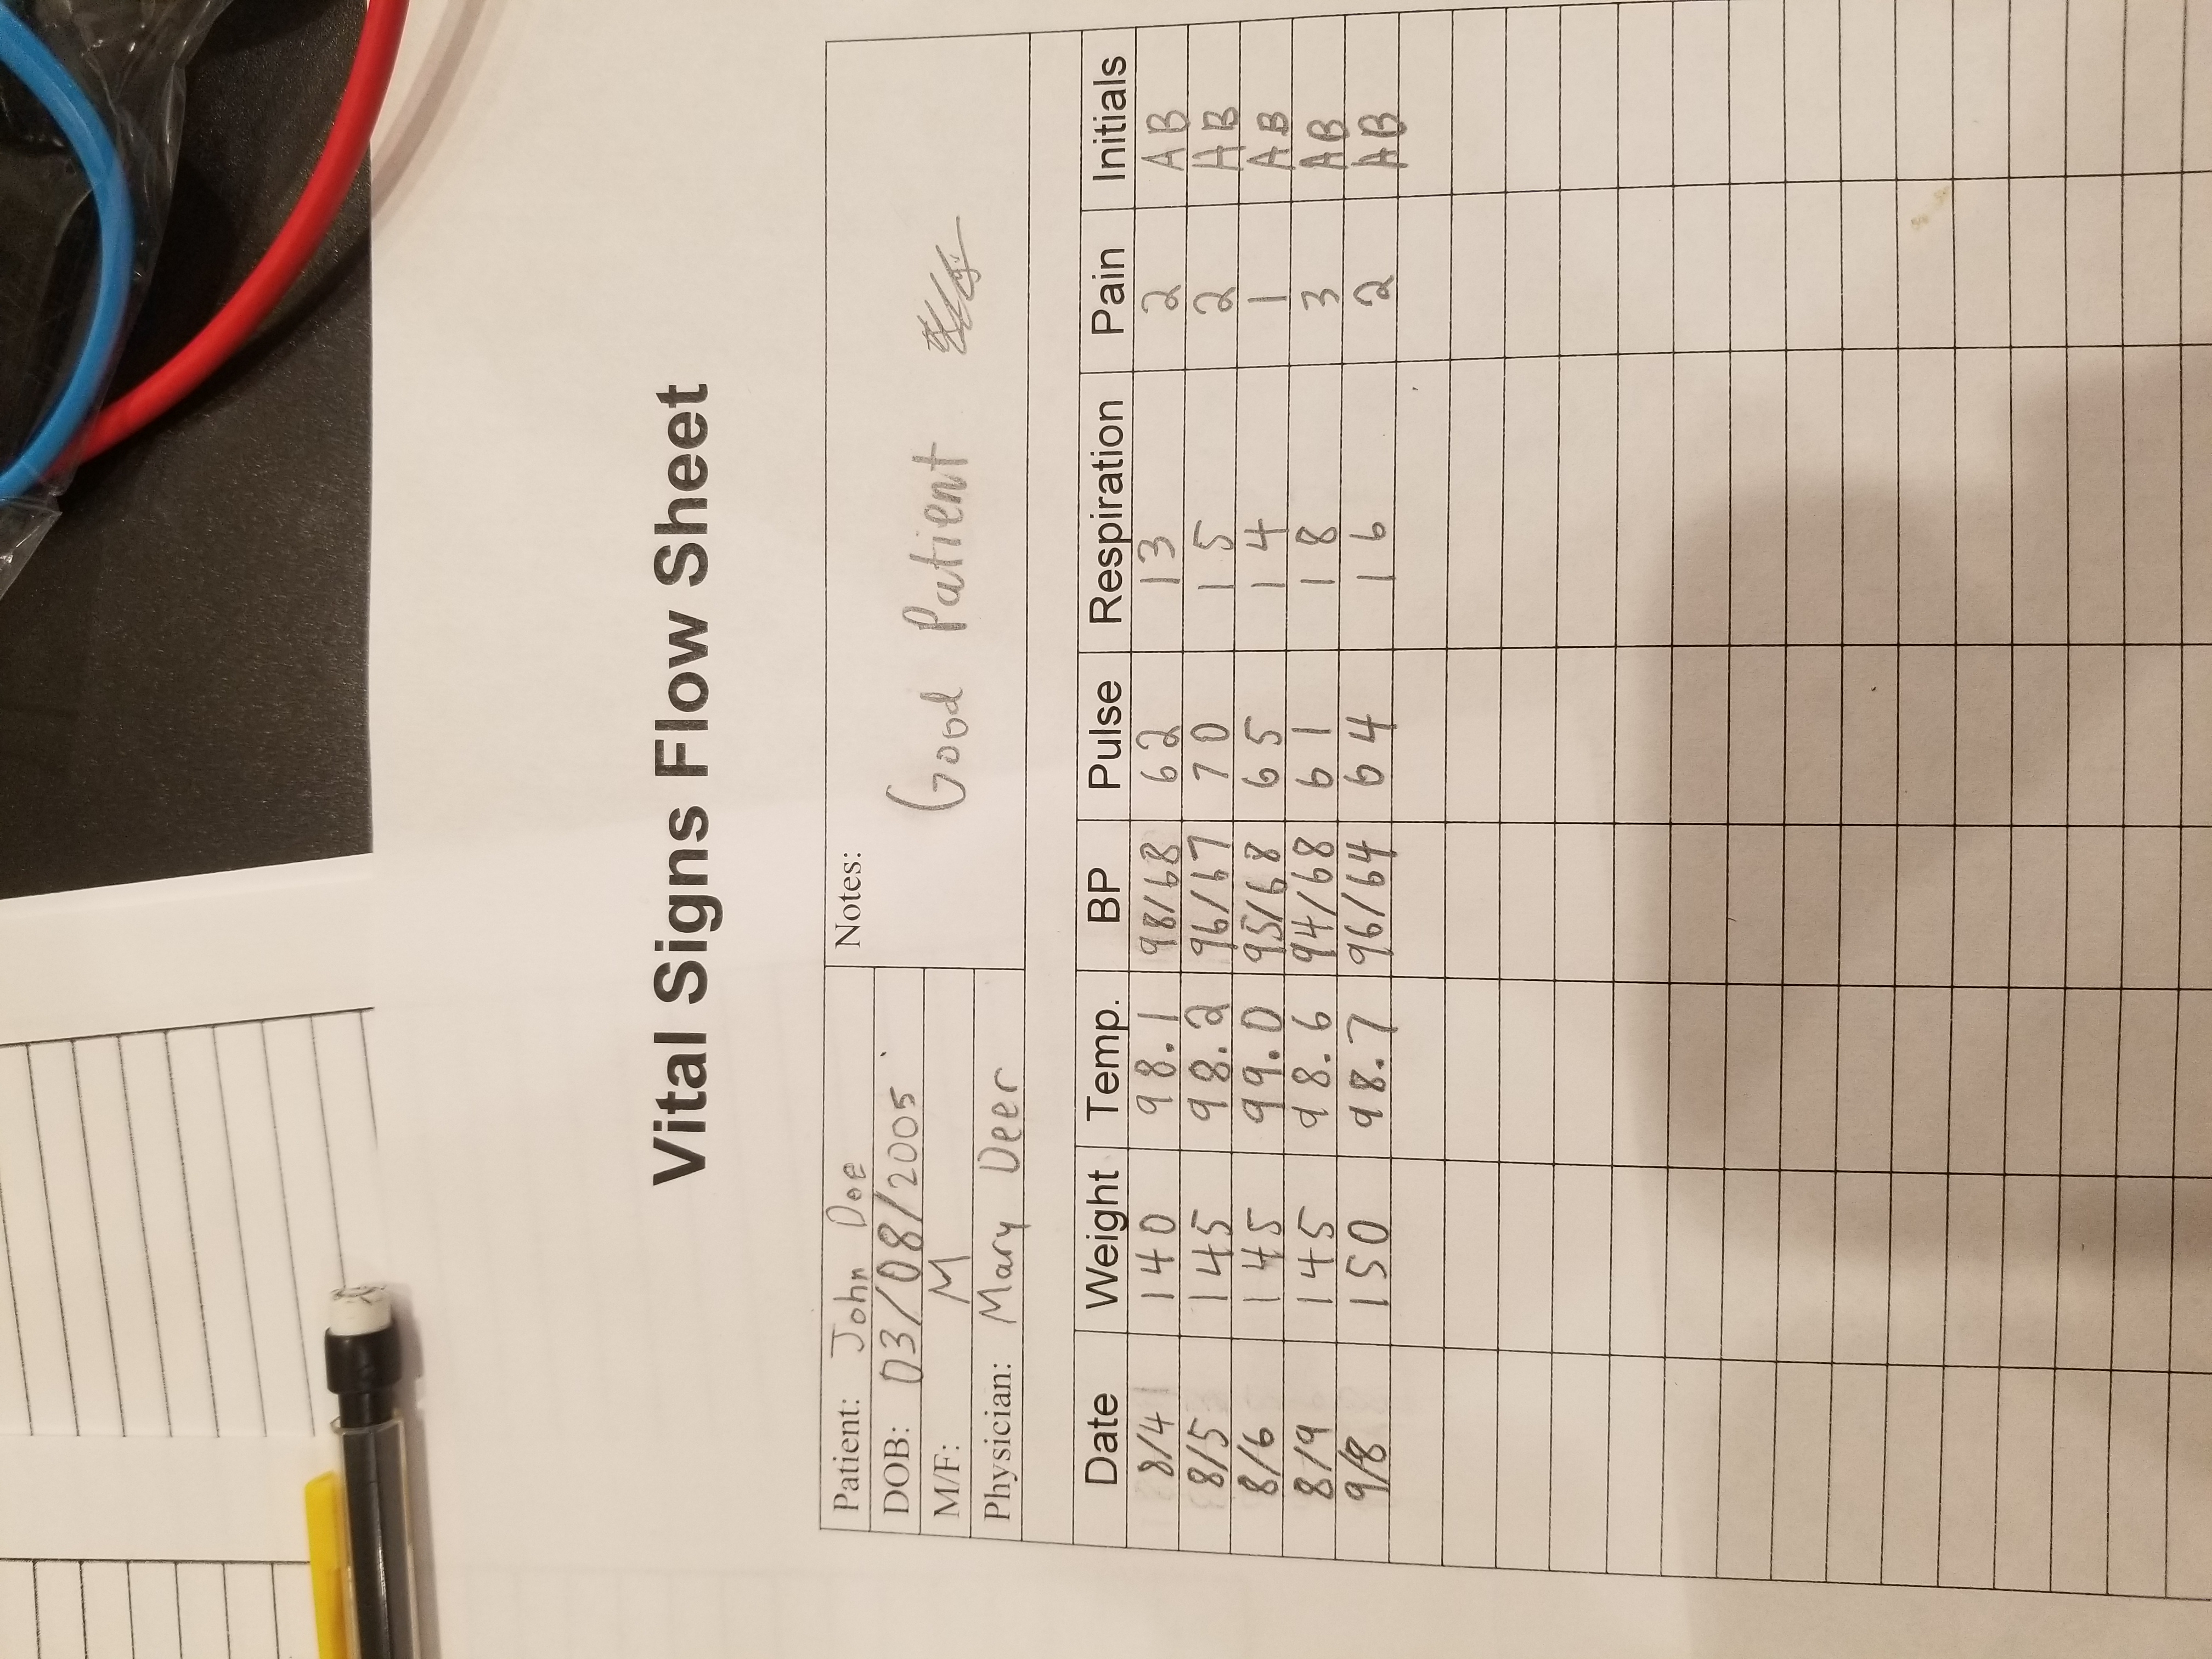 Vital Signs Flow Sheet
Patient: John Doe
DOB: 03/08/2005
M/F: M
Physician: Mary Deer
Notes:
Good Patient
Date Weight Temp. BP Pulse Respiration Pain Initials
8/4 140 98.1 98/68 62 13 2 AB
8/5 145 98.2 96/67 70 15 2 AB
8/6 145 99.0 95/68 65 14 1 AB
8/9 145 98.6 94/68 61 18 3 AB
9/8 150 98.7 96/64 64 16 2 AB